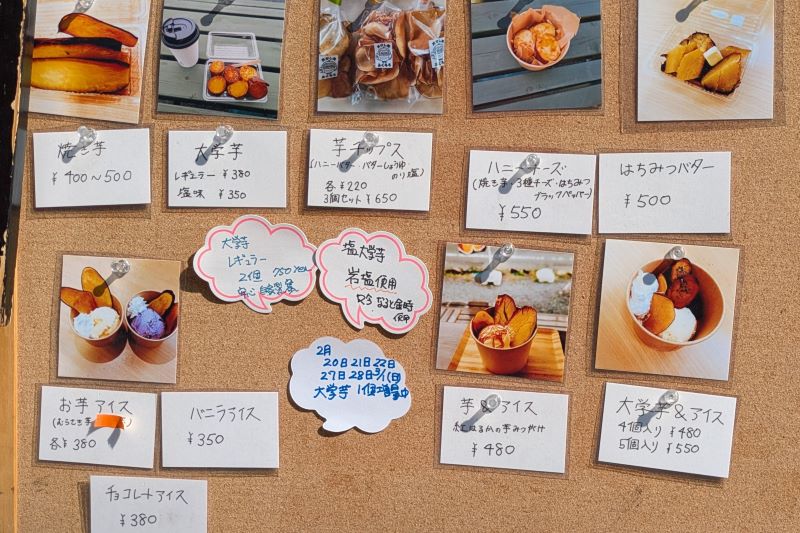 焼き芋
¥400〜500
大学芋
レギュラー ¥380
塩味 ¥350
芋チップス
(ハニーバター・バターしょうゆ・
のり塩)
各¥220
3個セット ¥650
ハニーチーズ
(焼き芋・3種チーズ・はちみつ
ブラックペッパー)
¥550
はちみつバター
¥500
大学芋
レギュラー
2個 750yen
塩大学芋
岩塩使用
なると金時
使用
2月
20日21日22日
27日28日3/1(日)
大学芋 1個増量中
お芋アイス
(むらさき芋
各¥380
バニラアイス
¥350
チョコレートアイス
¥380
芋&アイス
紅はるかの芋みつがけ
¥480
大学芋&アイス
4個入り ¥480
5個入り ¥550